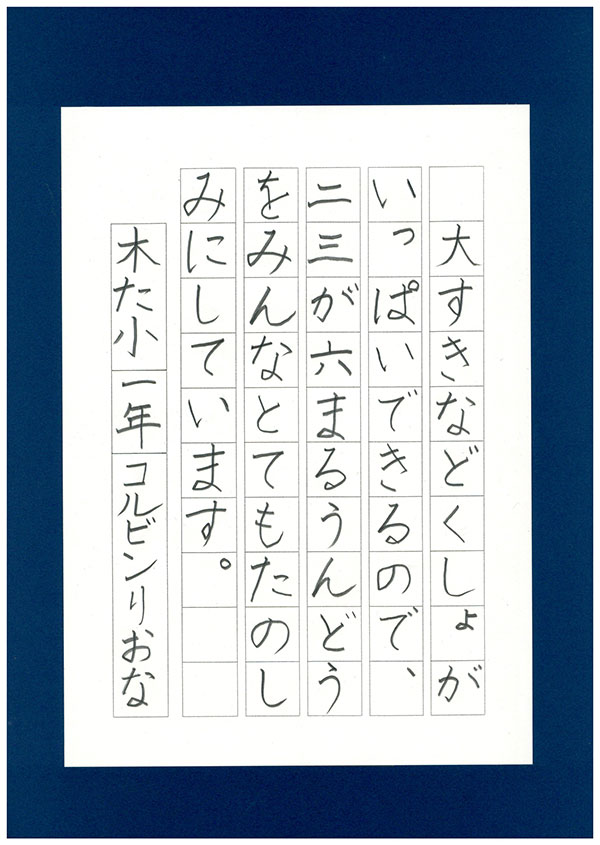 大すきなどくしょが
いっぱいできるので、
二三が六まるうんどう
をみんなとてもたのし
みにしています。
木た小 一年 コルビンりおな